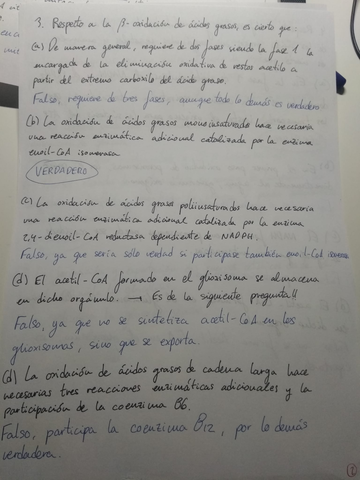 3. Respecto a la β-oxidación de ácidos grasos, es cierto que:
(a) De manera general, requiere de dos fases siendo la fase 1 la
encargada de la eliminación oxidativa de restos acetilo a
partir del extremo carboxilo del ácido graso.
Falso, requiere de tres fases, aunque todo lo demás es verdadero
(b) La oxidación de ácidos grasos monoinsaturados hace necesaria
una reacción enzimática adicional catalizada por la enzima
enoil-CoA isomerasa.
VERDADERO
(c) La oxidación de ácidos grasos poliinsaturados hace necesaria
una reacción enzimática adicional catalizada por la enzima
2,4-dienoil-CoA reductasa dependiente de NADPH.
Falso, ya que sería solo verdad si participase también enoil-CoA isomerasa
(d) El acetil-CoA formado en el glioxisoma se almacena
en dicho orgánulo. → Es de la siguiente pregunta!!
Falso, ya que no se sintetiza acetil-CoA en los
glioxisomas, sino que se exporta.
(d) La oxidación de ácidos grasos de cadena larga hace
necesarias tres reacciones enzimáticas adicionales y la
participación de la coenzima B6.
Falso, participa la coenzima B12, por lo demás
verdadera.